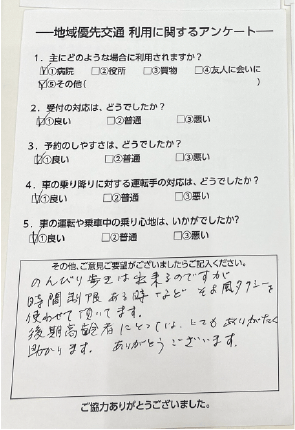 ―地域優先交通 利用に関するアンケート―
1．主にどのような場合に利用されますか？
☑①病院 □②役所 □③買物 □④友人に会いに
☑⑤その他(                    )
2．受付の対応は、どうでしたか？
☑①良い □②普通 □③悪い
3．予約のしやすさは、どうでしたか？
☑①良い □②普通 □③悪い
4．車の乗り降りに対する運転手の対応は、どうでしたか？
☑①良い □②普通 □③悪い
5．車の運転や乗車中の乗り心地は、いかがでしたか？
☑①良い □②普通 □③悪い
その他、ご意見ご要望がございましたらご記入ください。
のんびり歩きは出来るのですが
時間制限ある時などそよ風タクシーを
使わせて頂いてます。
後期高齢者にとっては、とてもありがたく
助かります。 ありがとうございます。
ご協力ありがとうございました。